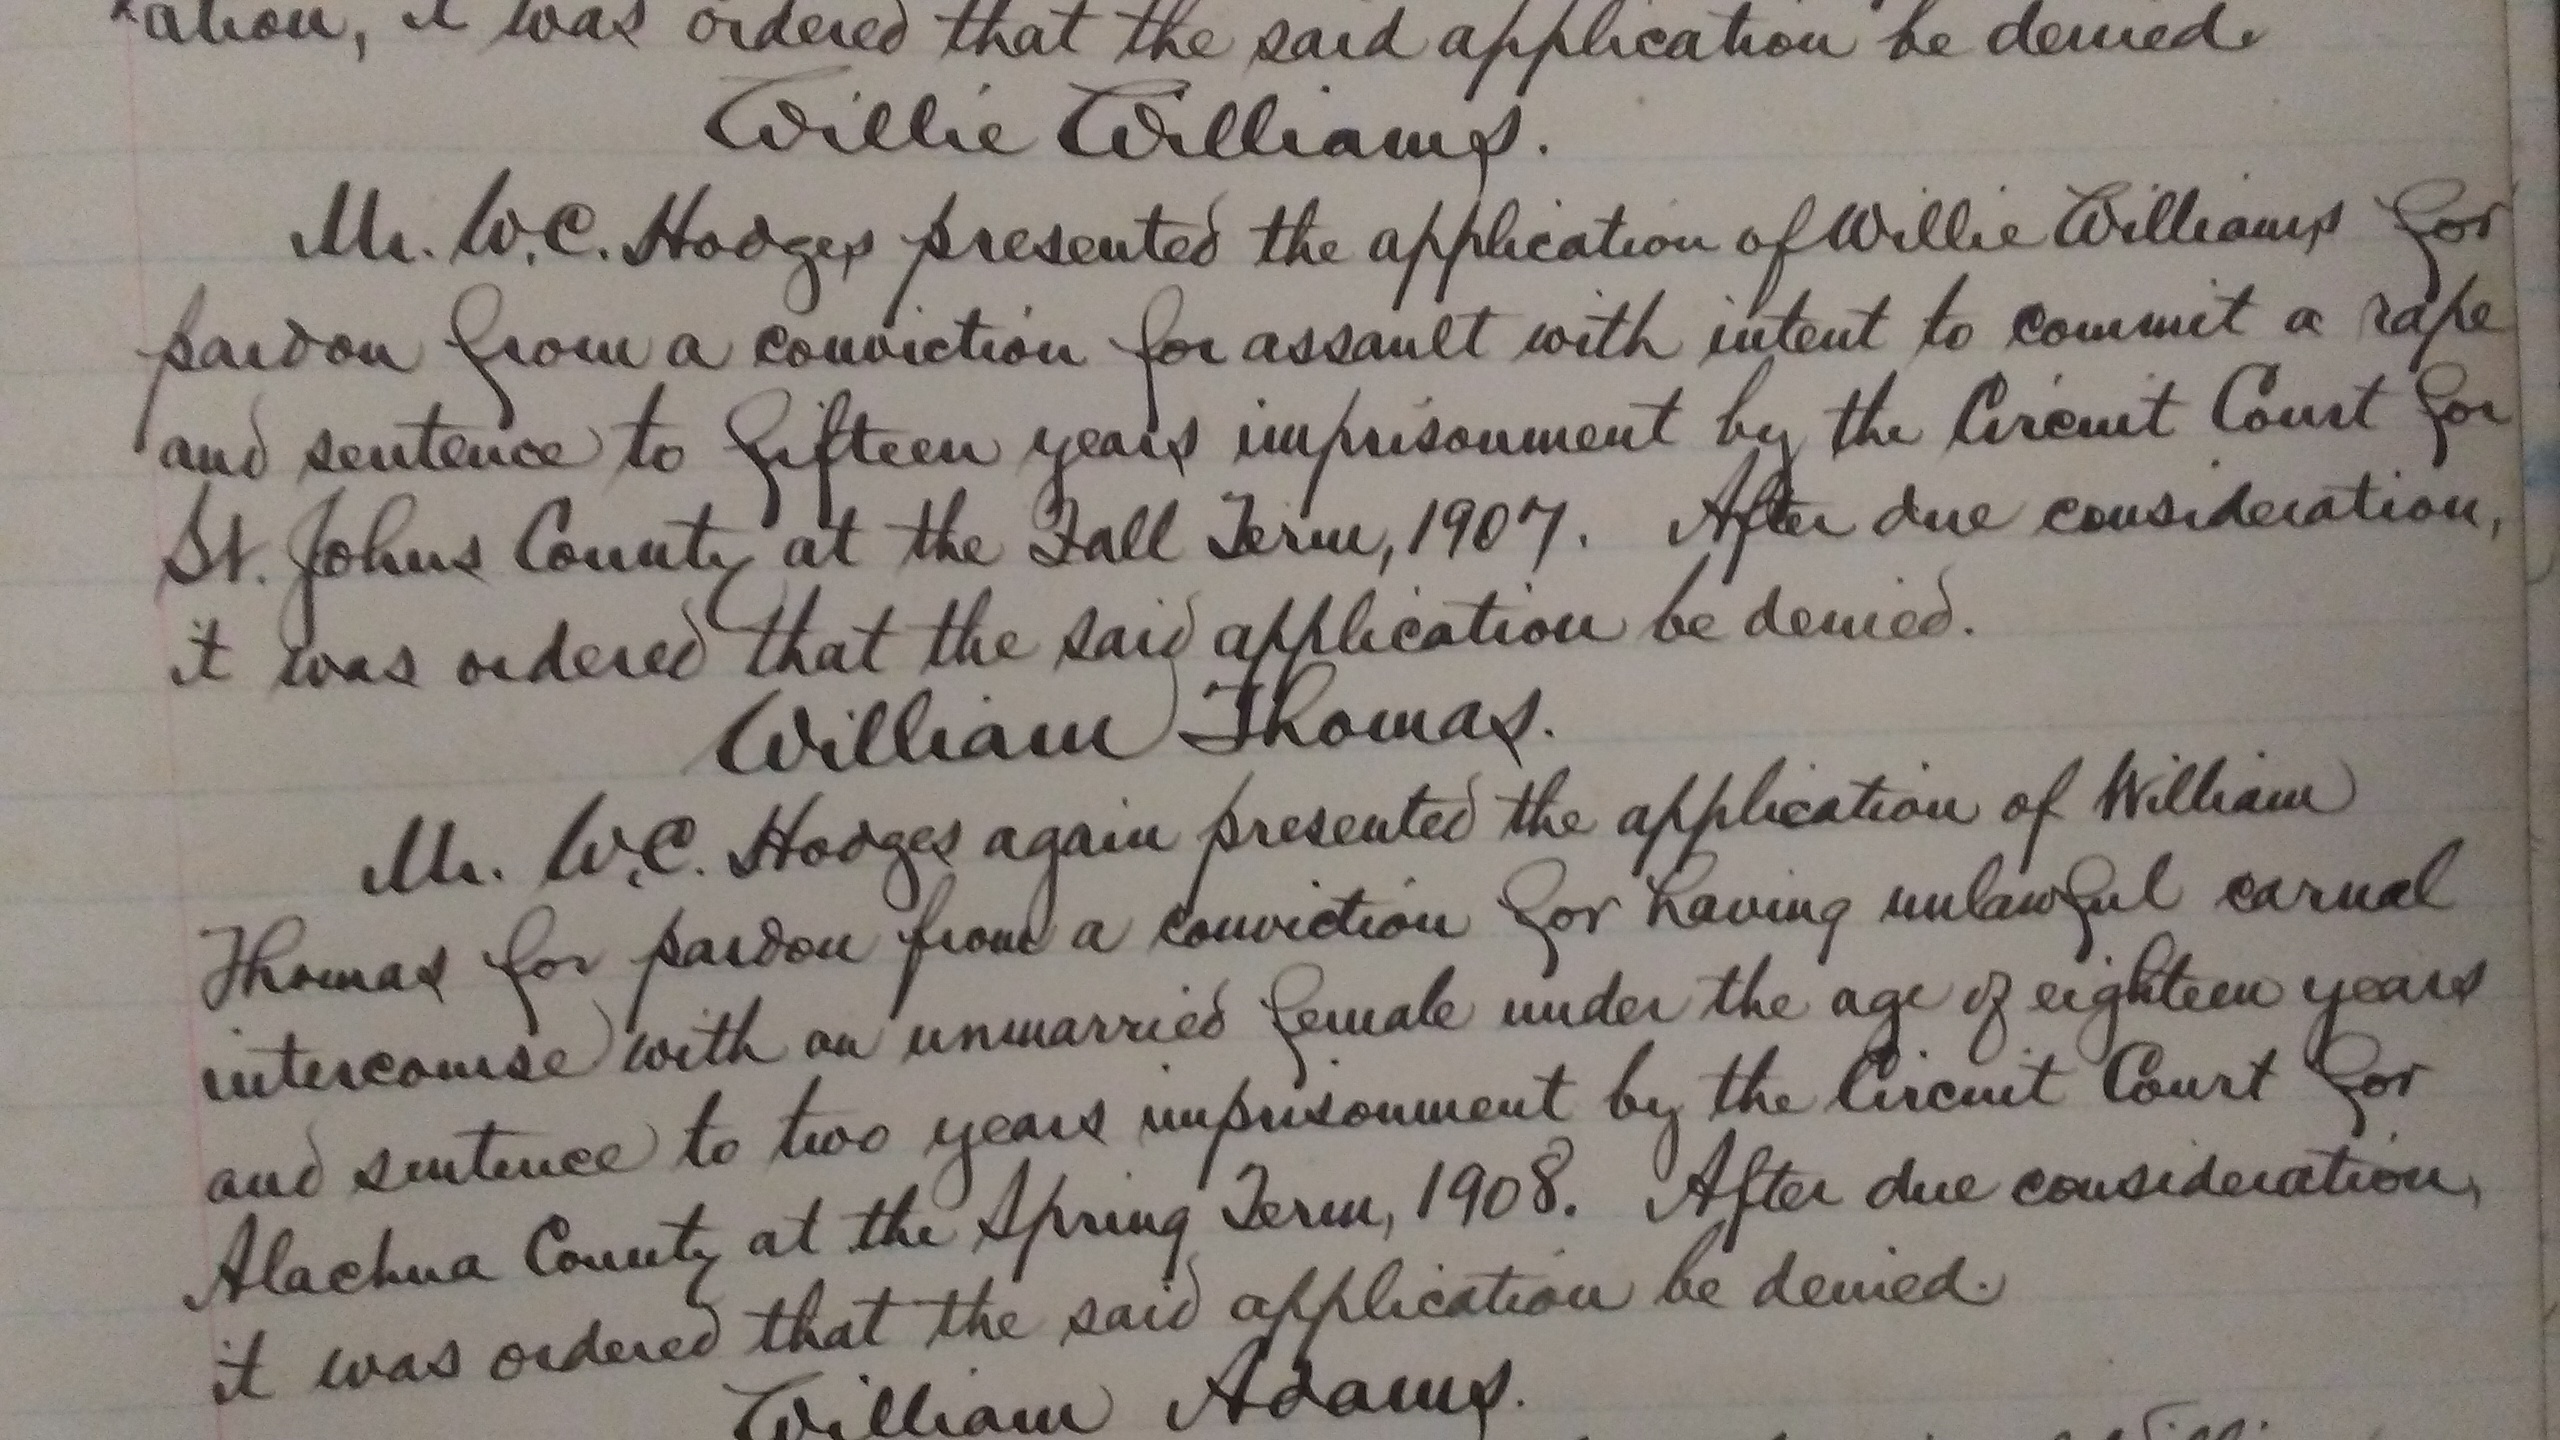 ation, it was ordered that the said application be denied.
Willie Williams.
Mr. W.C. Hodges presented the application of Willie Williams for
pardon from a conviction for assault with intent to commit a rape
and sentence to fifteen years imprisonment by the Circuit Court for
St. Johns County at the Fall Term, 1907. After due consideration,
it was ordered that the said application be denied.
William Thomas.
Mr. W.C. Hodges again presented the application of William
Thomas for pardon from a conviction for having unlawful carnal
intercourse with an unmarried female under the age of eighteen years
and sentence to two years imprisonment by the Circuit Court for
Alachua County at the Spring Term, 1908. After due consideration,
it was ordered that the said application be denied.
William Adams.